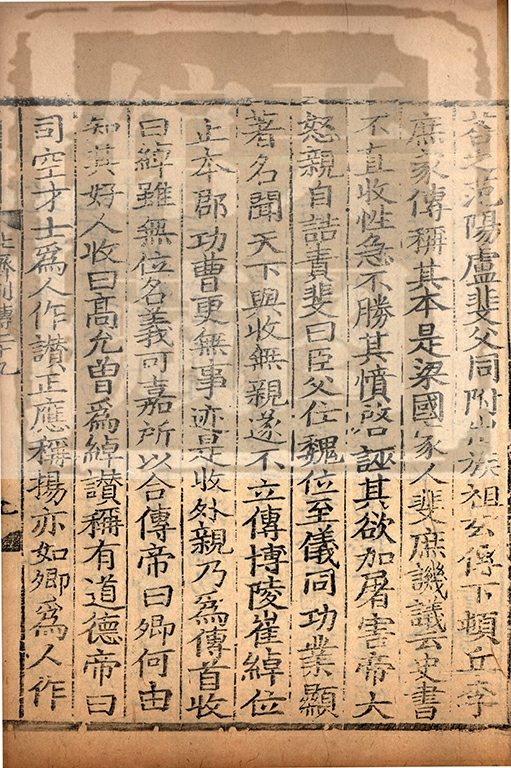 荅之范陽盧斐父同附出族祖玄傳下頓丘李
庶家傳稱其本是梁國家人斐庶譏議云史書
不直收性急不勝其憤啓誣其欲加屠害帝大
怒親自詰責斐曰臣父位魏位至儀同功業顯
著名聞天下與收無親遂不立傳博陵崔綽位
止本郡功曹更無事迹是收外親乃爲傳首收
曰綽雖無位名義可嘉所以合傳帝曰卿何由
知其好人收曰高允曾爲綽讃稱有道德帝曰
司空才士爲人作讃正應稱揚亦如卿爲人作
列傳二十九
九